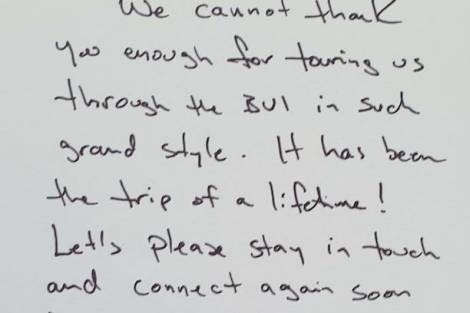 We cannot thank
you enough for touring us
through the BVI in such
grand style. It has been
the trip of a lifetime!
Let's please stay in touch
and connect again soon